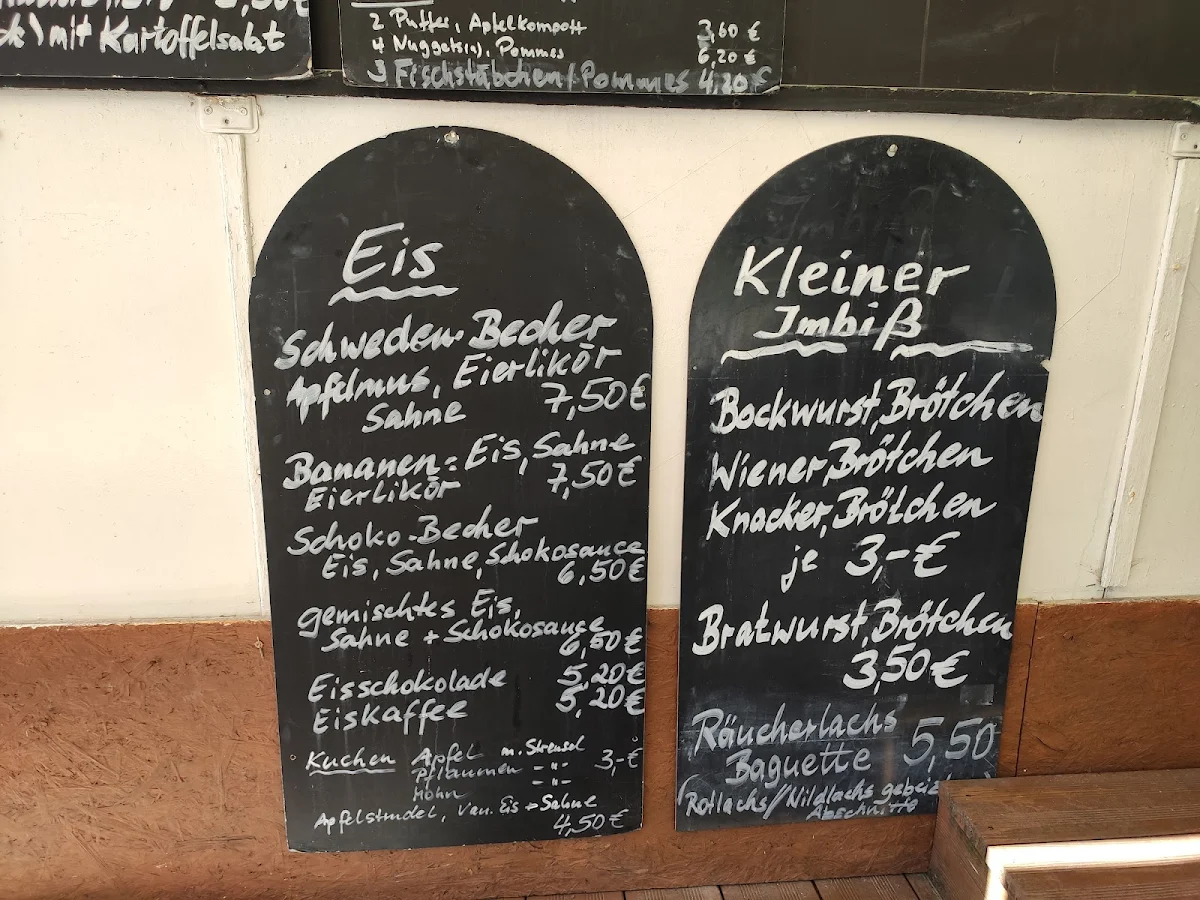 mit Kartoffelsalat
2 Puffer, Apfelkompott 3,60 €
4 Nuggets(a), Pommes 6,20 €
3 Fischstäbchen/Pommes 4,20 €
Eis
Schweden-Becher
Apfelmus, Eierlikör
Sahne 7,50 €
Bananen-Eis, Sahne
Eierlikör 7,50 €
Schoko-Becher
Eis, Sahne, Schokosauce
6,50 €
gemischtes Eis,
Sahne + Schokosauce
6,50 €
Eisschokolade 5,20 €
Eiskaffee 5,20 €
Kuchen Apfel m. Streusel 3,-€
Pflaumen -"-
Mohn -"-
Apfelstrudel, Van. Eis + Sahne
4,50 €
Kleiner
Imbiß
Bockwurst, Brötchen
Wiener, Brötchen
Knacker, Brötchen
je 3,-€
Bratwurst, Brötchen
3,50 €
Räucherlachs
Baguette 5,50
(Rotlachs/Wildlachs gebeizt
Abschnitte